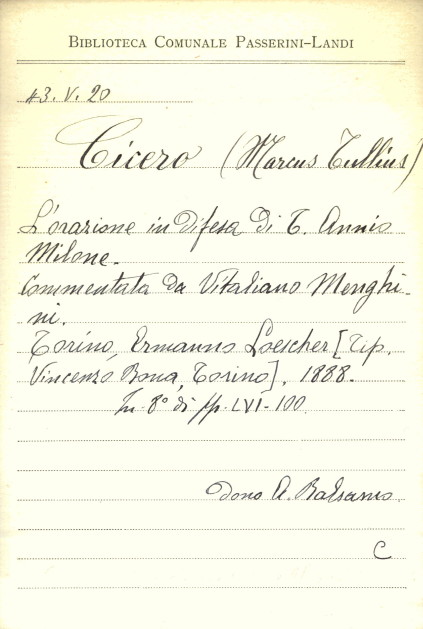 BIBLIOTECA COMUNALE PASSERINI-LANDI
43. V. 20
Cicero (Marcus Tullius)
L'orazione in difesa di T. Annio
Milone.
Commentata da Vitaliano Menghi-
ni.
Torino, Ermanno Loescher [Tip.
Vincenzo Bona, Torino], 1888.
In-8° di pp. LVI-100
Dono A. Balsamo
C